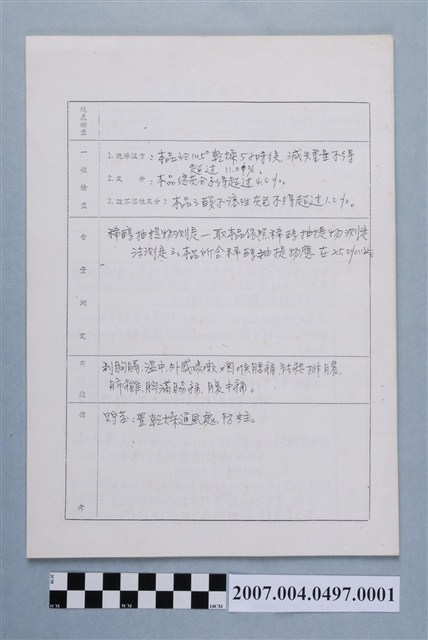 純度檢查
一般檢查
1. 乾燥減重：本品於105°乾燥5小時後，減失重量不得
超过 11.0%。
2. 灰分：本品總灰分不得超过 4.0%。
3. 酸不溶性灰分：本品之酸不溶性灰分不得超过 1.0%。
含量測定
稀醇抽提物測定－取本品依照稀醇抽提物測定
法測定之，本品所含稀醇抽提物應在25.0%以上
利胸膈，溫中，外感咳嗽，咽喉腫痛
排膿
胸滿脇痛，腹中痛。
貯法：置乾燥通風處，防蛀。
備考
10CM
2007.004.0497.0001